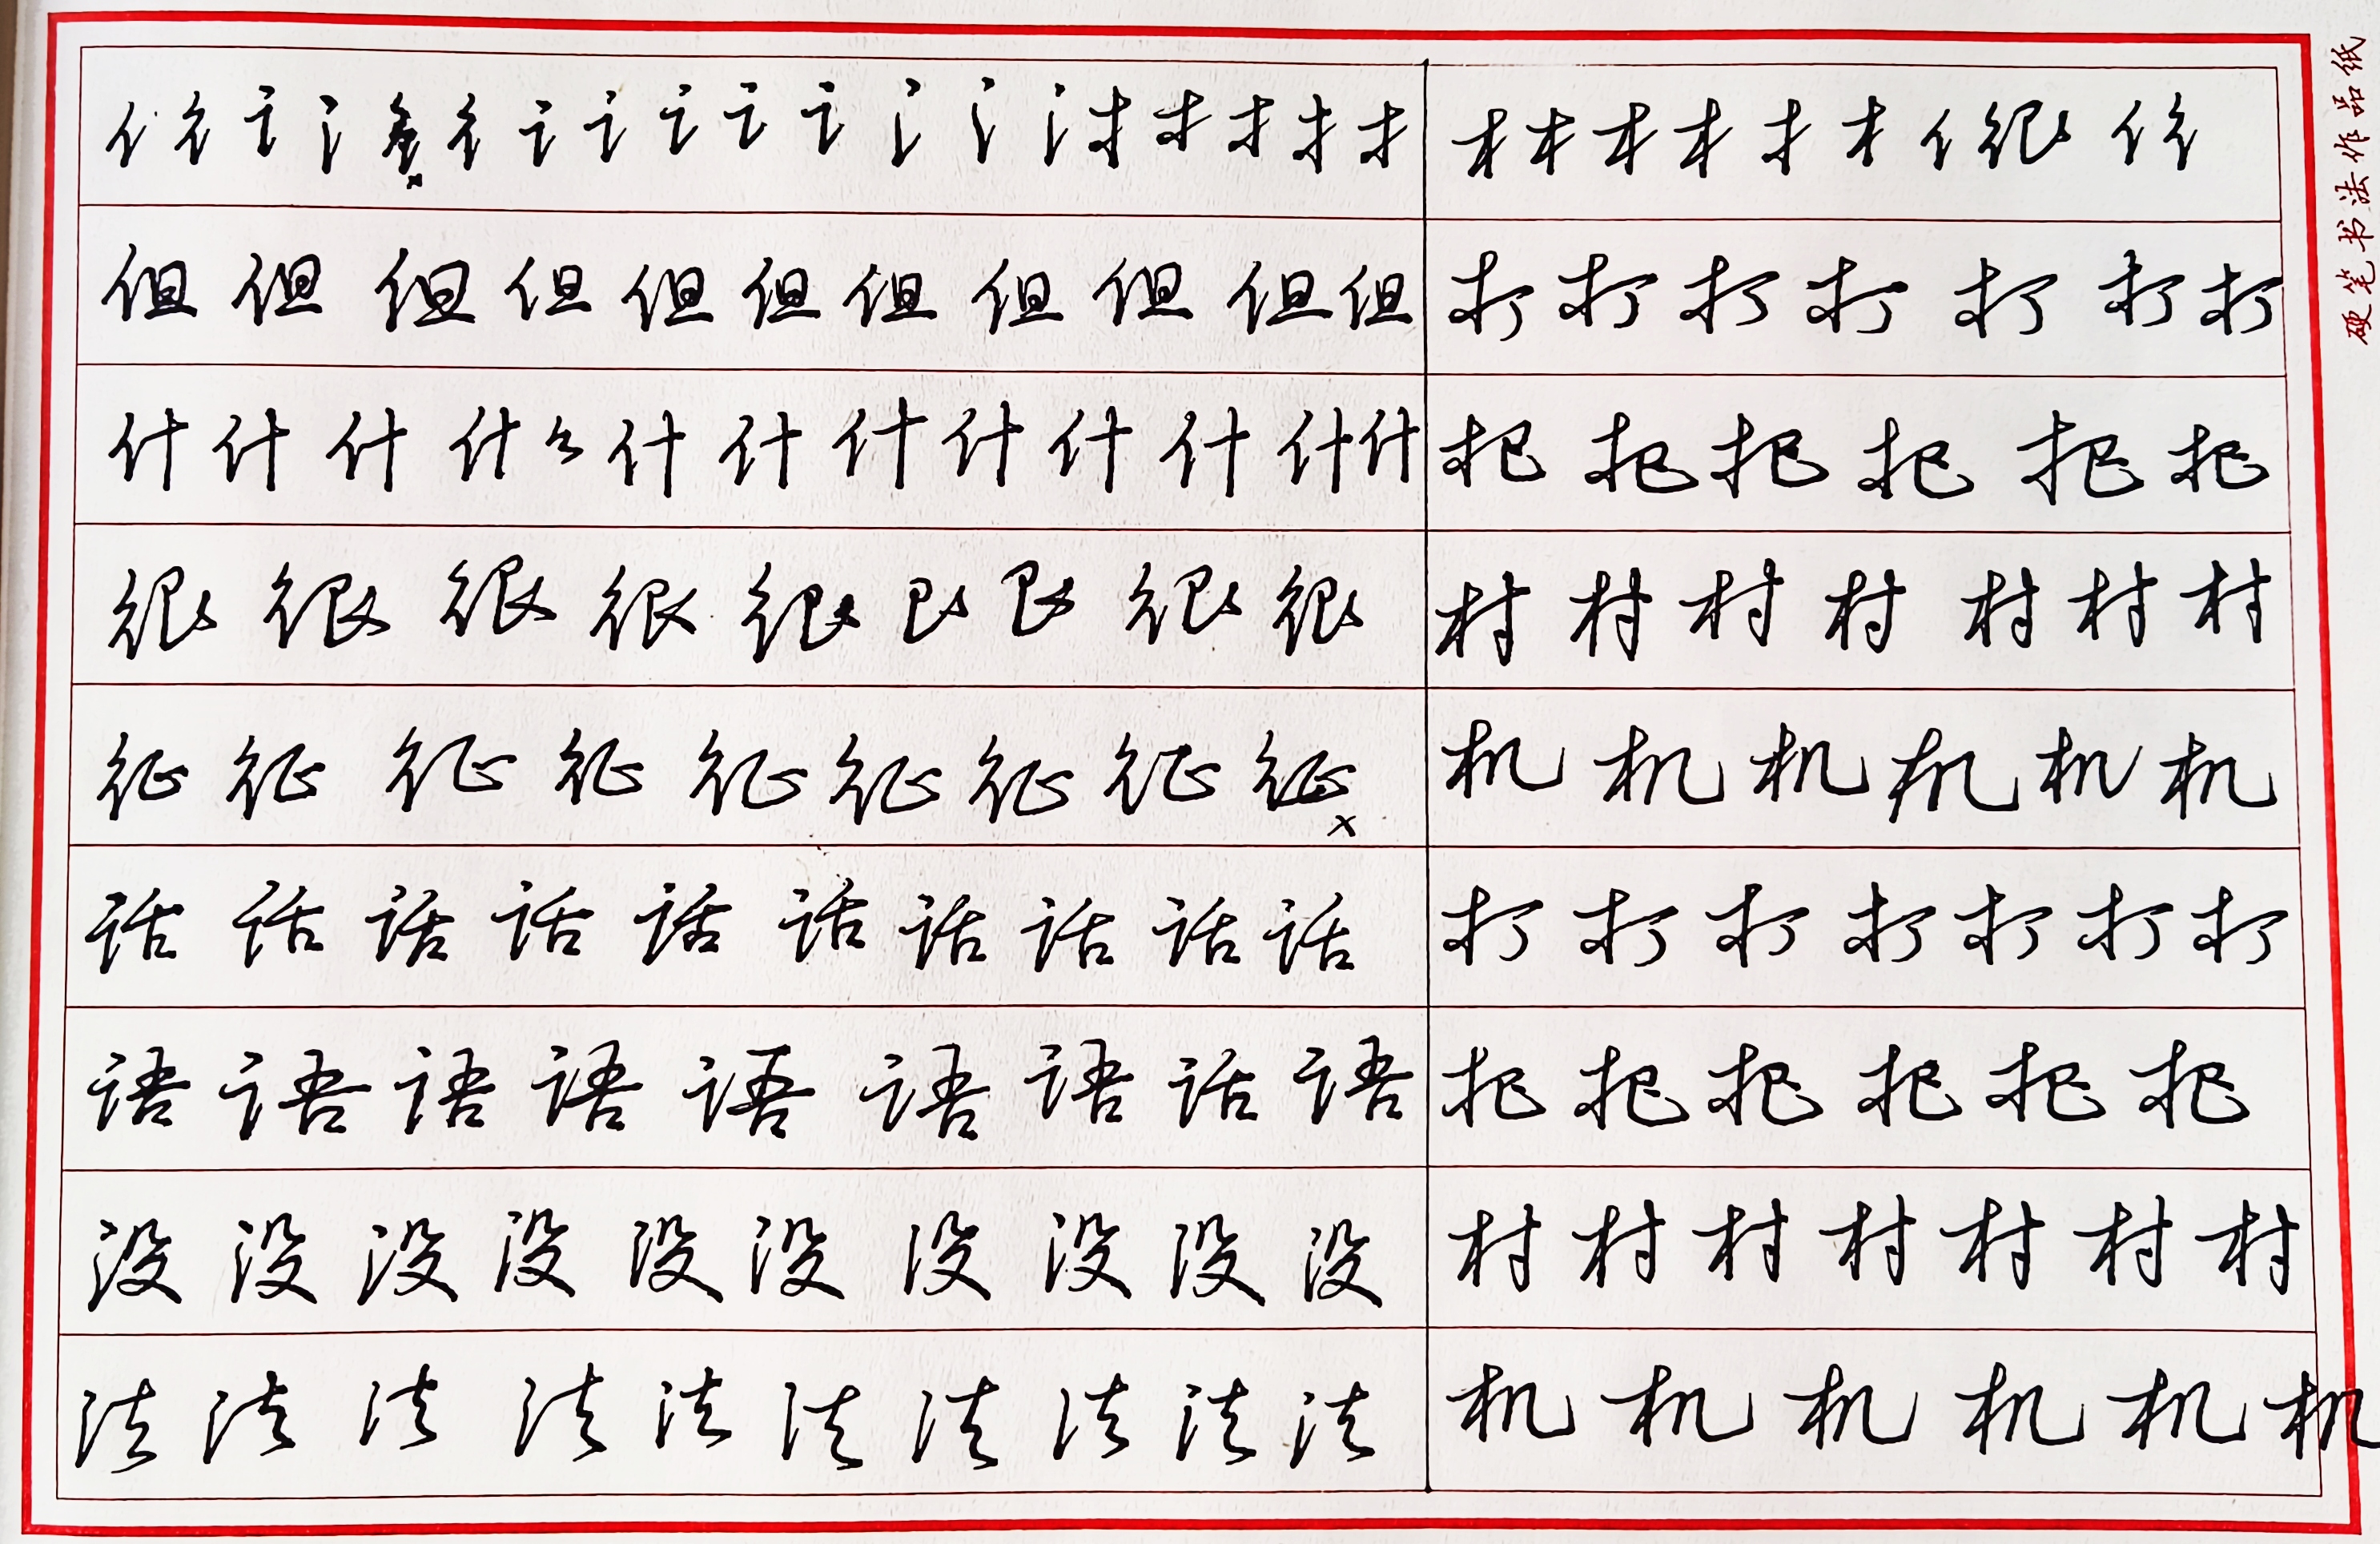 亻 彳 讠 氵 彳 讠 讠 讠 讠 讠 氵 氵 氵 扌 扌 扌 扌 扌 木 木 木 木 扌 木 亻 很 亻 彳
但 但 但 但 但 但 但 但 但 但 但 打 打 打 打 打 打 打
什 什 什 什 么 什 什 什 什 什 什 什 什 把 把 把 把 把 把
很 很 很 很 很 艮 艮 很 很 村 村 村 村 村 村 村
征 征 征 征 征 征 征 征 征 机 机 机 机 机 机
话 话 话 话 话 话 话 话 话 话 打 打 打 打 打 打 打
语 语 语 语 语 语 语 话 语 把 把 把 把 把 把
没 没 没 没 没 没 没 没 没 没 村 村 村 村 村 村 村
法 法 法 法 法 法 法 法 法 法 机 机 机 机 机 机
硬笔书法作品纸